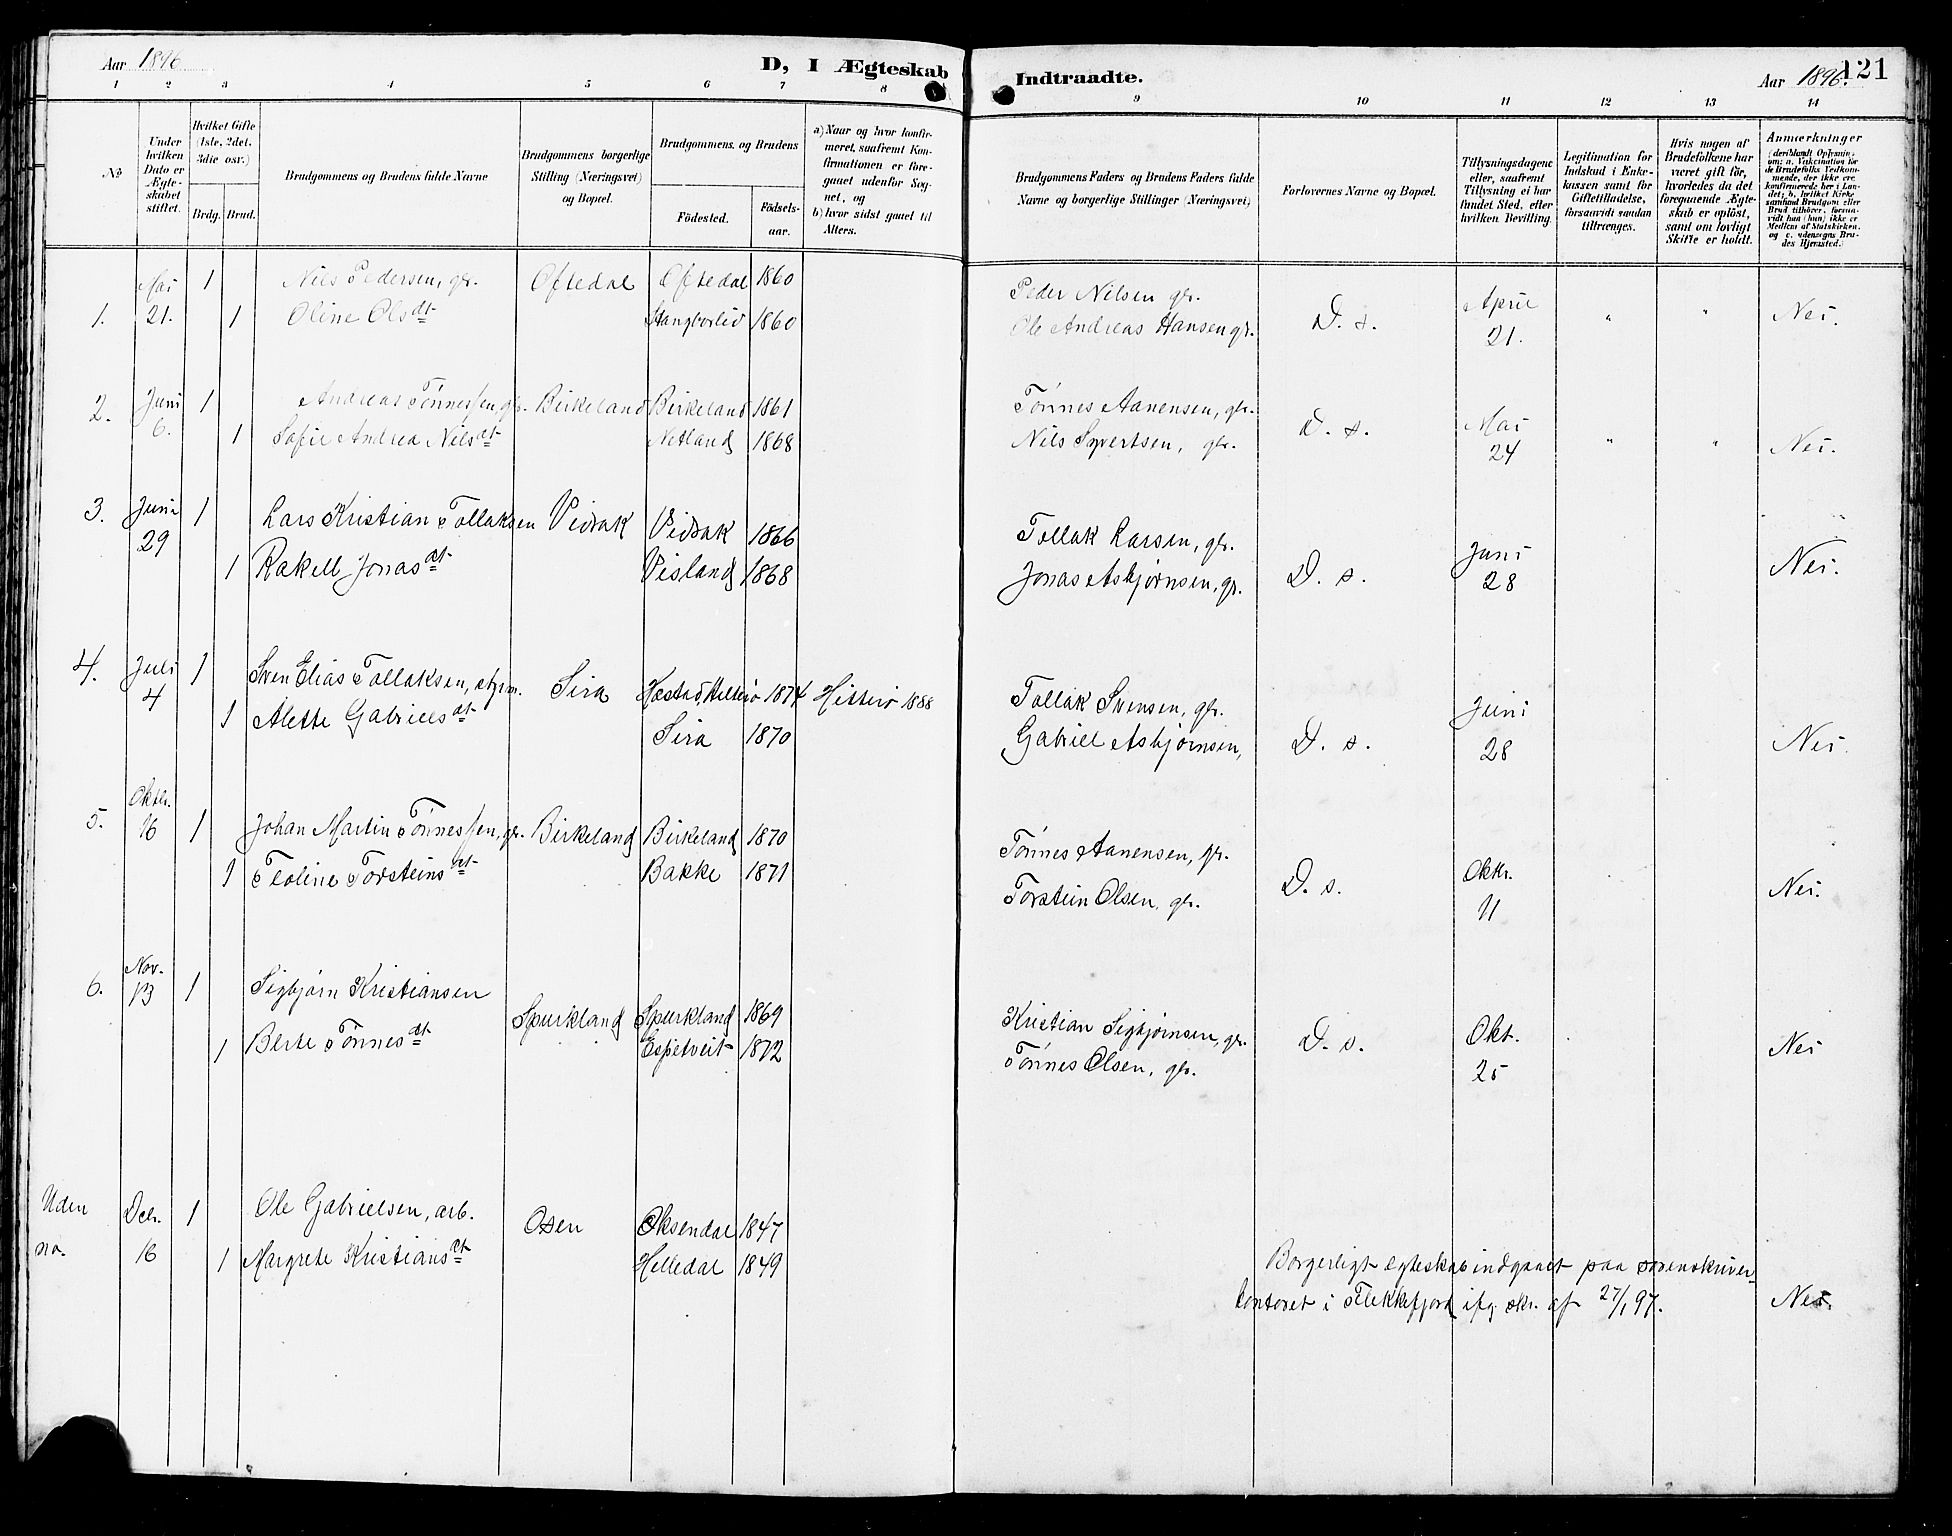 Aar 1896
D, I Ægteskab
Indtraadte.
Aar 1896.
121
1 2 3 4 5 6 7 8 9 10 11 12 13 14
No
Under hvilken Dato er Ægteskabet stiftet.
Hvilket Gifte (1ste, 2det, 3die osv.)
Brdg. Brud.
Brudgommens og Brudens fulde Navne
Brudgommens borgerlige Stilling (Næringsvei) og Bopæl.
Brudgommens og Brudens
Födested. Födsels-aar.
a) Naar og hvor konfirmeret, saafremt Konfirmationen er foregaaet udenfor Sognet, og
b) hvor sidst gaaet til Alters.
Brudgommens Faders og Brudens Faders fulde Navne og borgerlige Stillinger (Næringsvei)
Forlovernes Navne og Bopæl.
Tillysningsdagene eller, saafremt Tillysning ei har fundet Sted, efter hvilken Bevilling.
Legitimation for Indskud i Enkekassen samt for Giftetilladelse, forsaavidt saadan tiltrænges.
Hvis nogen af Brudefolkene har været gift för, hvorledes da det foregaaende Ægteskab er oplöst, samt om lovligt Skifte er holdt.
Anmærkninger
1. Mai 21. 1 Nils Pedersen, gbr. Oftedal Oftedal 1860 Peder Nilsen gbr. D. s. April 21. " " Nei.
1 Oline Olsdt Stangborlid 1860 Ole Andreas Hansen gbr.
2. Juni 6. 1 Andreas Tönnessen, gbr. Birkeland Birkeland 1861 Tönnes Aanensen, gbr. D. s. Mai 24 " " Nei.
1 Sofie Andrea Nilsdt Netland 1868 Nils Syvertsen, gbr.
3. Juni 29 1 Lars Kristian Tollaksen Vidrak Vidrak 1866 Tollak Larsen, gbr. D. s. Juni 28 Nei.
1 Rakell Jonasdt Visland 1868 Jonas Asbjørnsen, gbr.
4. Juli 4 1 Sven Elias Tollaksen, styrm. Sira Hæstad, Hitterø 1874 Hitterø 1888 Tollak Svensen, gbr. D. s. Juni 28 Nei.
1 Alette Gabrielsdt Sira 1870 Gabriel Asbjørnsen,
5. Oktbr. 16 1 Johan Martin Tönnessen, gbr. Birkeland Birkeland 1870 Tönnes Aanensen, gbr. D. s. Oktr. 11 Nei.
1 Teoline Torsteinsdt Bakke 1871 Torstein Olsen, gbr.
6. Nov. 13 1 Sigbjørn Kristiansen Spurkland Spurkland 1869 Kristian Sigbjørnsen, gbr. D. s. Okt. 25 Nei
1 Berte Tönnesdt Espetveit 1872 Tönnes Olsen, gbr.
Uden no. Decbr. 16 1 Ole Gabrielsen, arb. Osen Øksendal 1847
1 Margrete Kristiansdt Helledal 1849
Borgerligt ægteskab indgaaet paa sorenskriver-
kontoret i Flekkefjord ifg. skr. af 27/1 97. Nei.